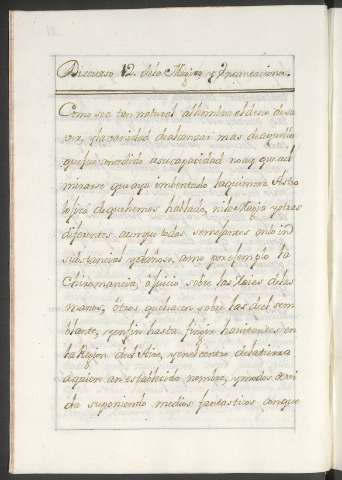 Discurso 12. dela Magia, y Incantaciones.
Como sea tan natural al hombre el deseo de sa
ver, y la vanidad de alcanzar mas de aquello
que fue concedido a su capacidad no ay que ad
mirarse que aya imbentado la quimera Astro
logica de que hemos hablado, ni la Magia y otras
diferentes aunque todas semejantes en lo in
substancial y dañoso, como por exemplo la
Chiromancia, ò juicio sobre las Raies delas
manos, ò tros que hacen sobre las del sem
blante, y en fin hasta fingir havitantes en
la Region del Aire, y en el centro dela tierra
a quien an establecido nombre, y modos de vi
da suponiendo medios fantasticos con que